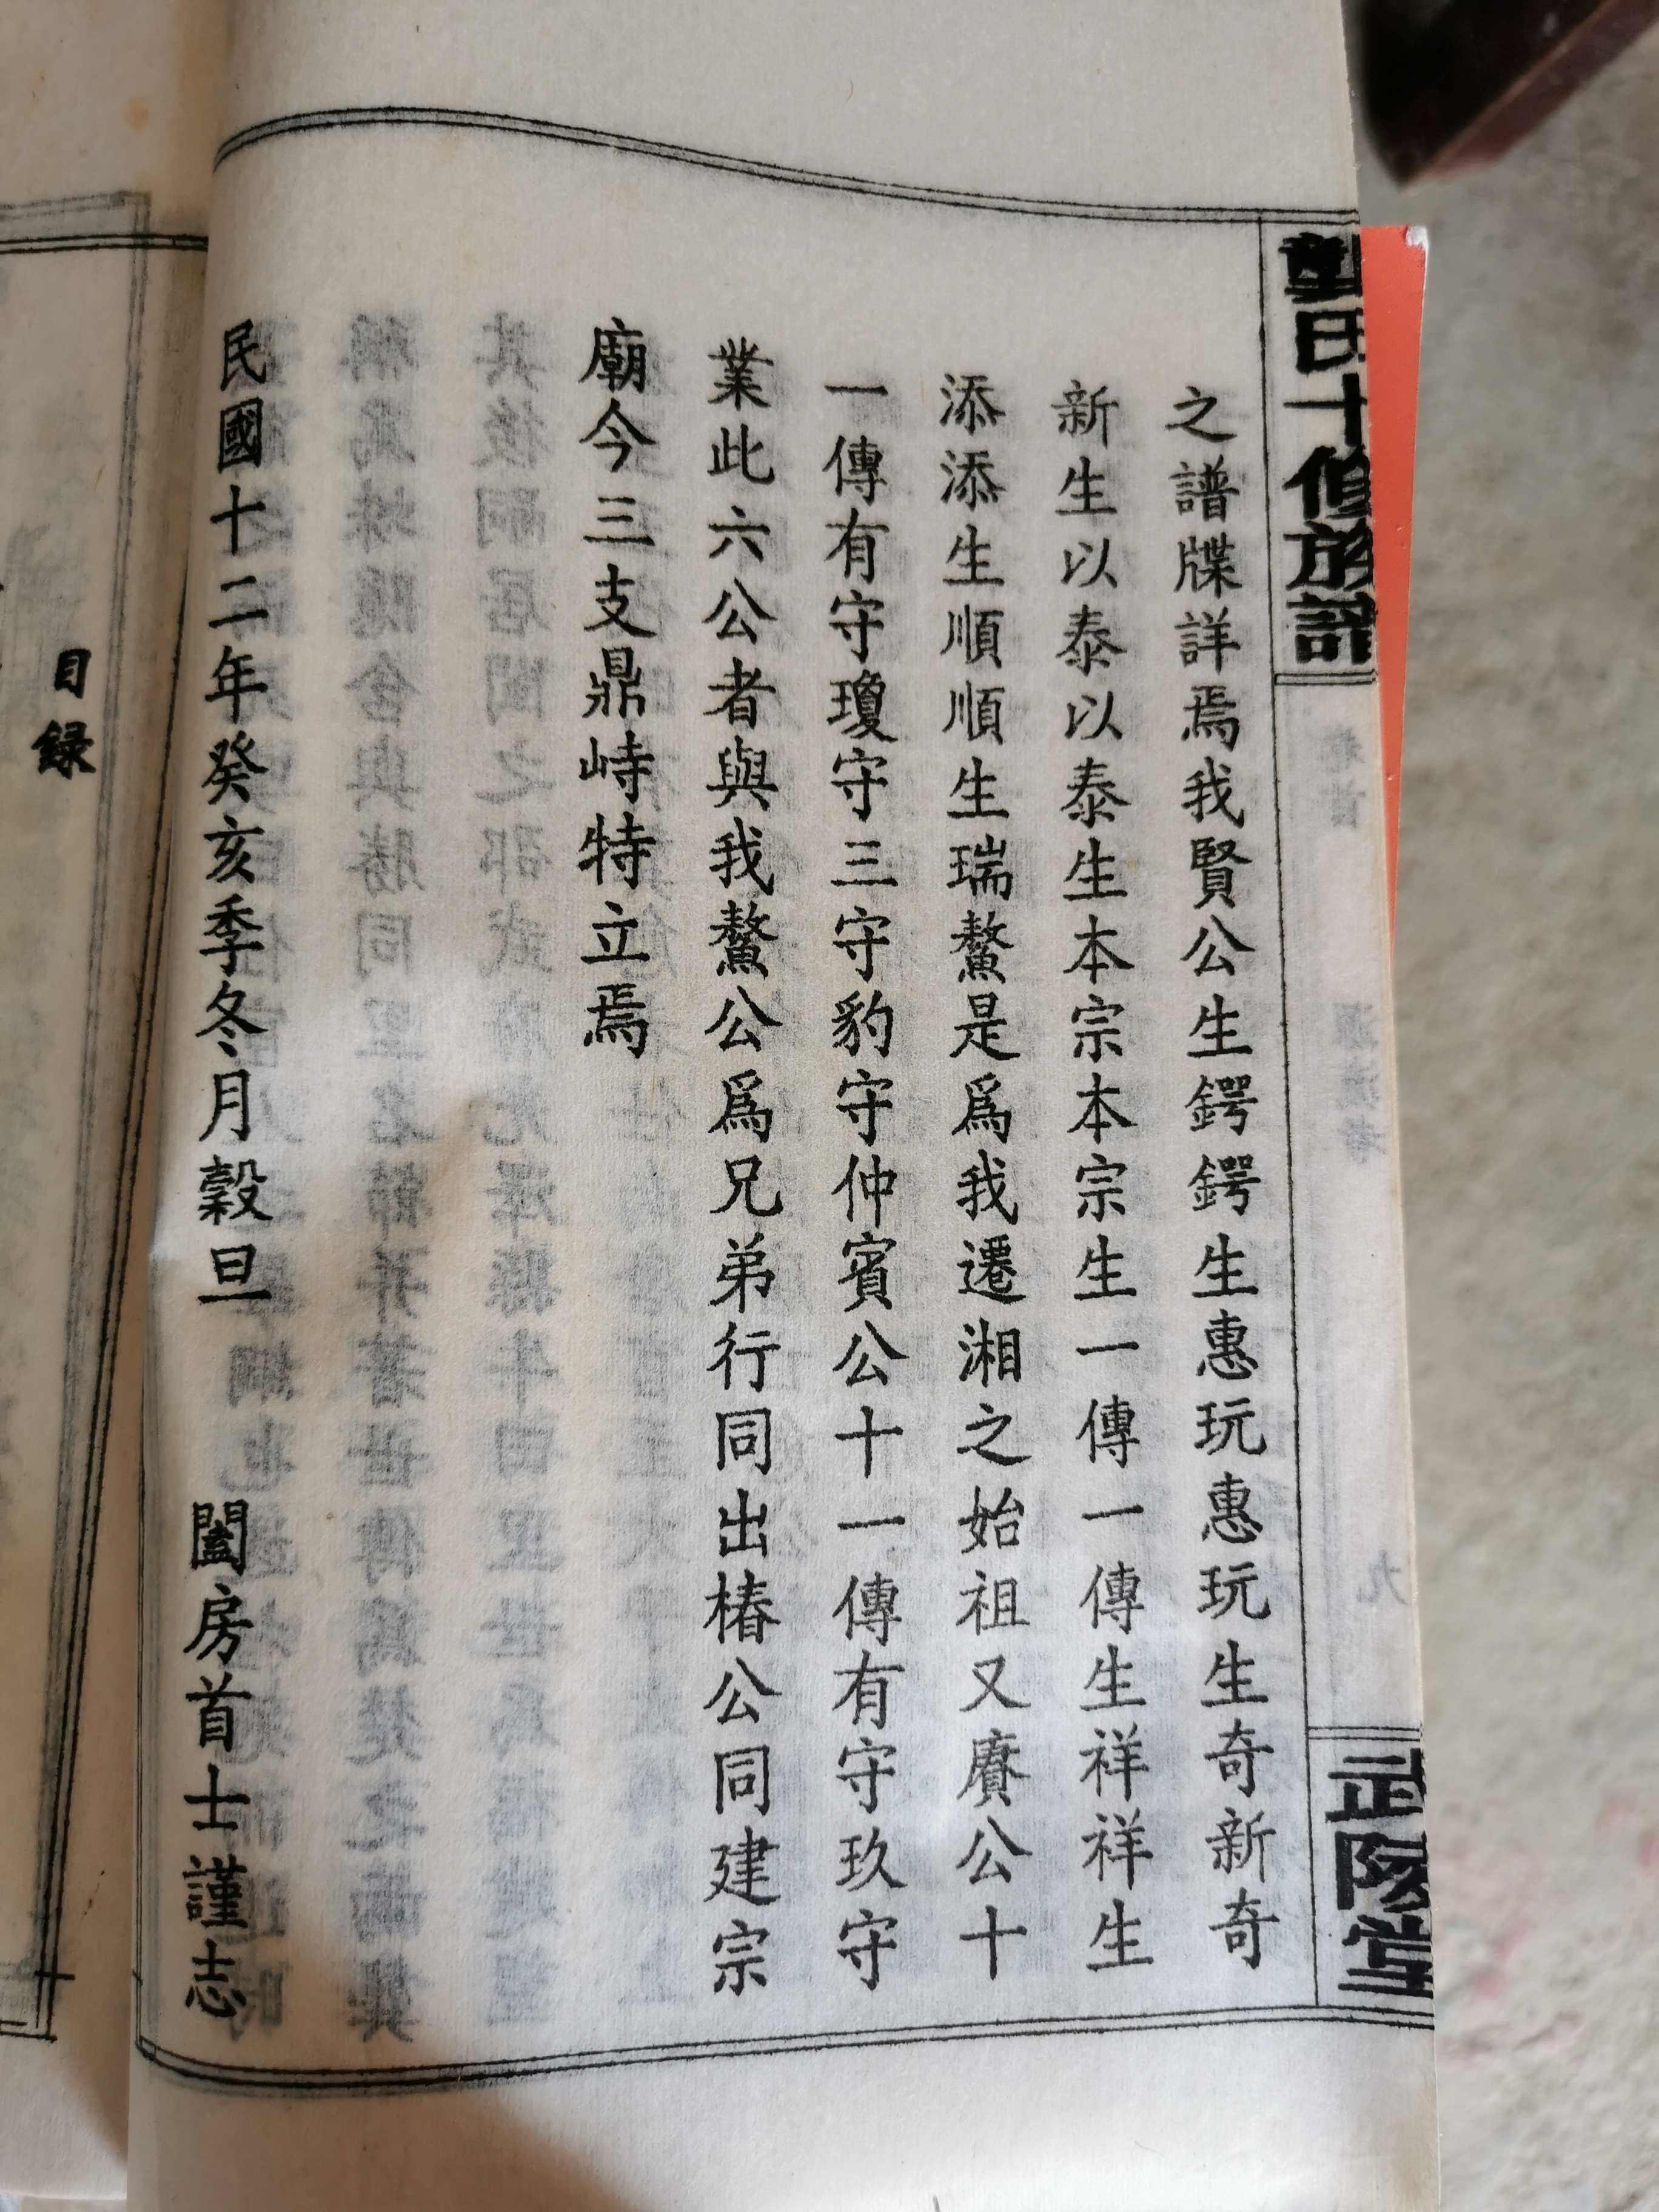 氏十修族譜
武陵堂
之譜牒詳焉我賢公生鍔鍔生惠玩惠玩生奇新奇
新生以泰以泰生本宗本宗生一傳一傳生祥祥生
添添生順順生瑞鰲是爲我遷湘之始祖又賡公十
一傳有守瓊守三守豹守仲賓公十一傳有守玖守
業此六公者與我鰲公爲兄弟行同出椿公同建宗
廟今三支鼎峙特立焉
民國十二年癸亥季冬月穀旦 闔房首士謹志
目錄